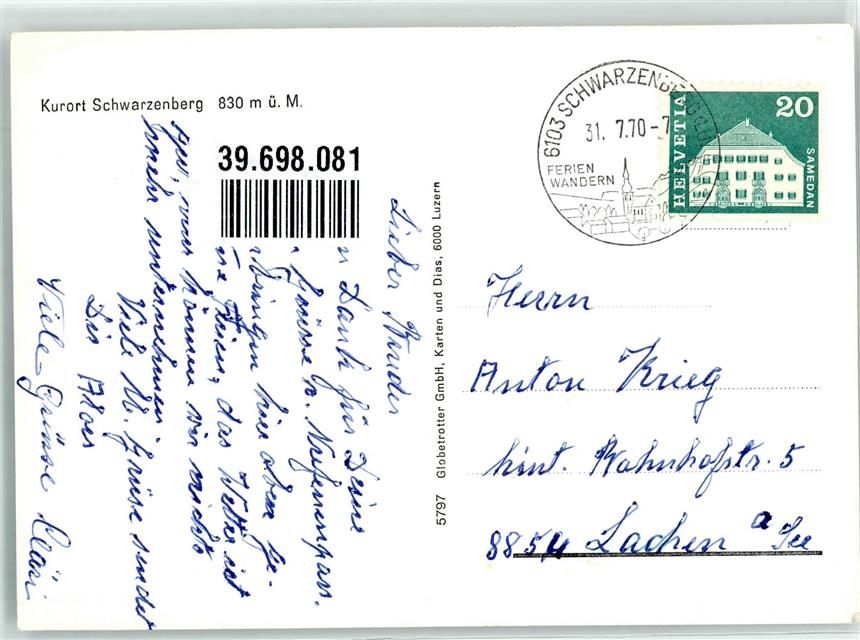 Kurort Schwarzenberg 830 m ü. M.
39.698.081
Lieber Bruder
Dank für Deine
Grüsse v. Nufenenpass.
hier oben ge-
das Wetter ist
nur können wir nichts
mehr unternehmen.
Viele lb. Grüsse sendet
Dir Alois
Viele Grüsse Kläri
5797 Globetrotter GmbH, Karten und Dias, 6000 Luzern
6103 SCHWARZENBERG LU
31. 7.70-7
FERIEN
WANDERN
HELVETIA
20
SAMEDAN
Herrn
Anton Krieg
hint. Bahnhofstr. 5
8854 Lachen a See